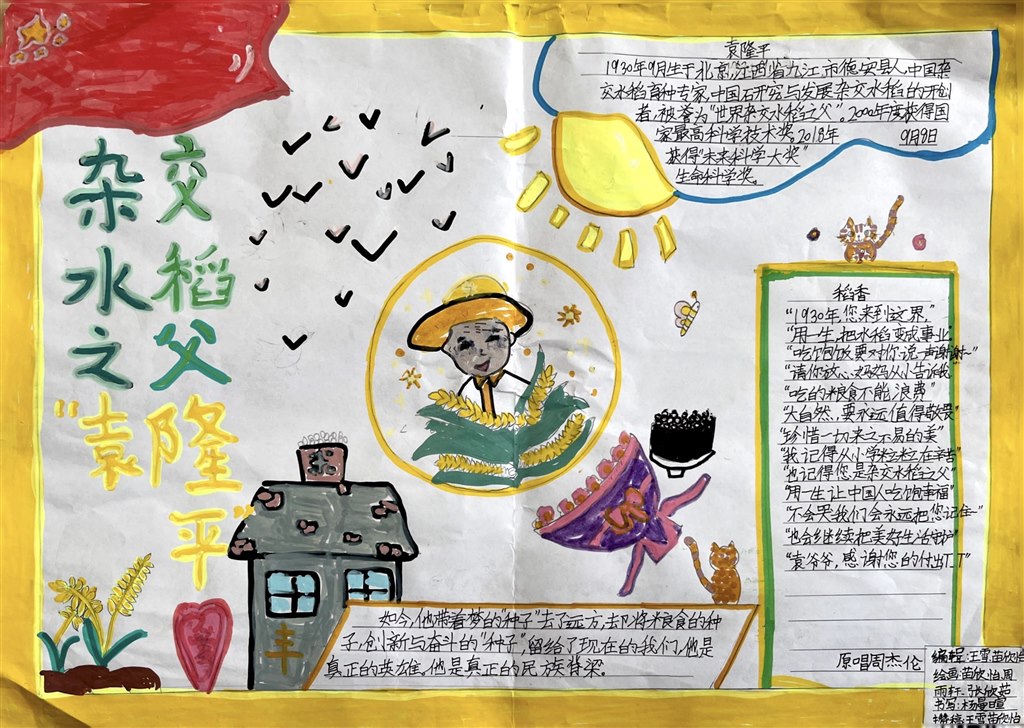 杂交
水稻
之父
"袁隆
平"
袁隆平
1930年9月生于北京,江西省九江市德安县人,中国杂
交水稻育种专家,中国研究与发展杂交水稻的开创
者,被誉为"世界杂交水稻之父"。2000年度获得国
家最高科学技术奖,2018年 9月8日
获得"未来科学大奖"
生命科学奖。
稻香
"1930年,您来到这界"
"用一生,把水稻变成事业"
"吃饱饭要对你说一声谢谢~"
"请你放心妈妈从小告诉我"
"吃的粮食不能浪费"
"大自然,要永远值得敬畏"
"珍惜一切来之不易的美"
"我记得从小学粒粒在辛苦"
"也记得您是杂交水稻之父"
"用一生让中国人吃饱幸福"
"不会哭我们会永远把您记住~"
"也会继续把美好生活守护"
"袁爷爷,感谢您的付出T_T"
原唱周杰伦
米
丰
如今,他带着梦的"种子"去了远方,却将粮食的种
子,创新与奋斗的"种子",留给了现在的我们,他是
真正的英雄,他是真正的民族脊梁。
编程:王雪苗欣怡
绘画:苗欣怡周
雨轩、张欣茹
书写:杨曼暄
王雪苗欣怡